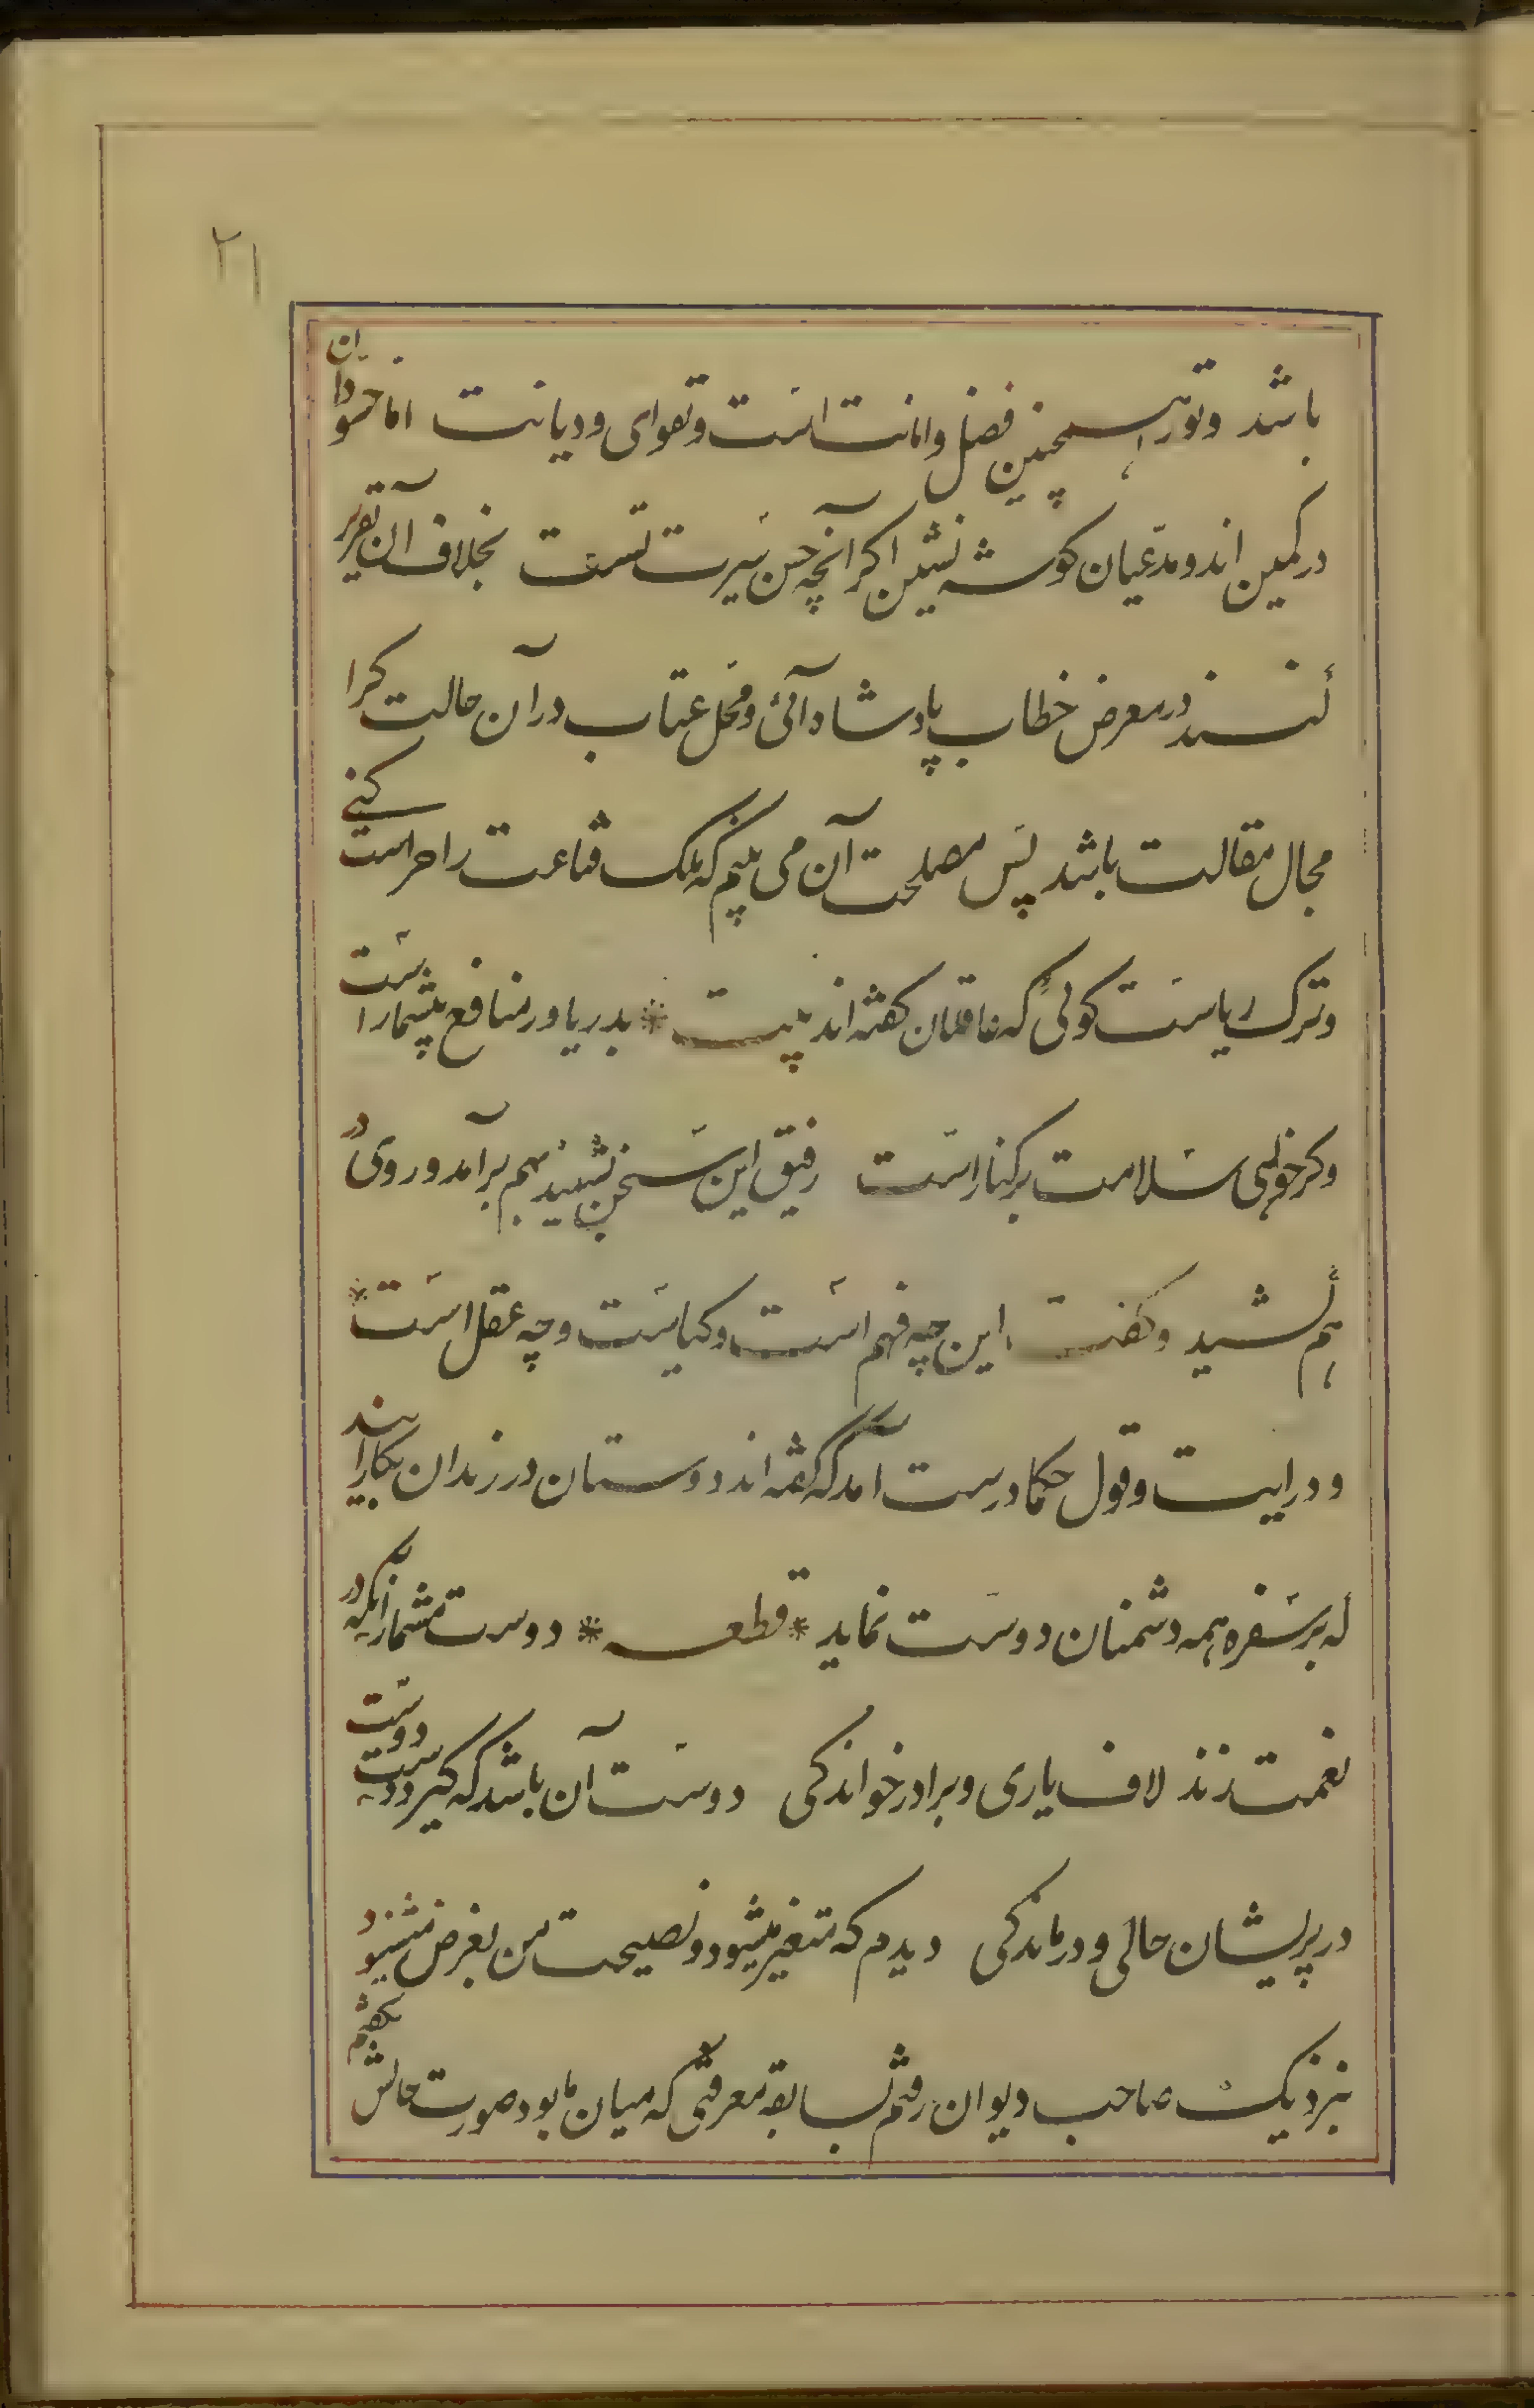 ۲۱
باشد وتورا همچنین فضل وامانت است وتقوای ودیانت اما حسودان
در کمین اند ومدعیان کوشه نشین اکر آنچه حسن سیرت تست بخلاف آن تقریر
کنند در معرض خطاب پادشاه آئی ومحل عتاب در آن حالت کرا
مجال مقالت باشد پس مصلحت آن می بینم که ملک قناعت را حراست کنی
وترک ریاست کوئی که عاقلان کفته اند بیت * بدریا در منافع بیشمار است
وکر خواهی سلامت بر کنار است رفیق این سخن بشنید بهم برآمد وروی در
هم کشید وکفت این چه فهم است وکیاست وچه عقل است *
ودرایت وقول حکما درست آمد که کفته اند دوستان در زندان بکار آیند
که بر سفره همه دشمنان دوست نماید * قطعه * دوست مشمار آنکه در
نعمت زند لاف یاری وبرادر خواندکی دوست آن باشد که کیرد دست دوست
در پریشان حالی ودرماندکی دیدم که متغیر میشود ونصیحت من بغرض میشنود
بنزدیک صاحب دیوان رفتم بسابقه معرفتی که میان ما بود صورت حالش بکفتم